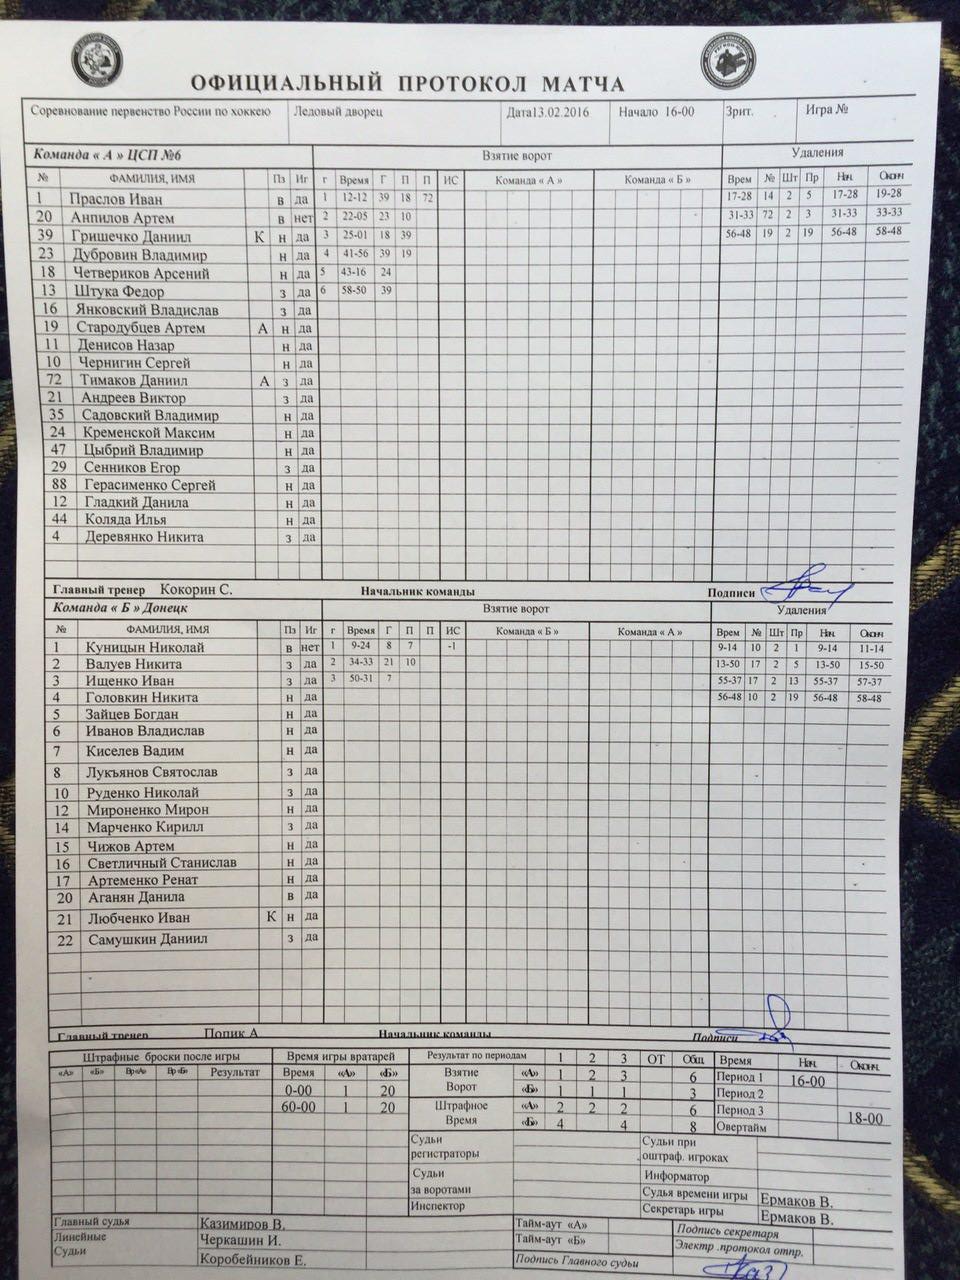 ОФИЦИАЛЬНЫЙ ПРОТОКОЛ МАТЧА
Соревнование первенство России по хоккею Ледовый дворец Дата13.02.2016 Начало 16-00 Зрит. Игра №
Команда « А » ЦСП №6 Взятие ворот Удаления
№ ФАМИЛИЯ, ИМЯ Пз Иг г Время Г П П ИС Команда « А » Команда « Б » Врем № Шт Пр Нач. Оконч
1 Праслов Иван в да 1 12-12 39 18 72 17-28 14 2 5 17-28 19-28
20 Анпилов Артем в нет 2 22-05 23 10 31-33 72 2 3 31-33 33-33
39 Гришечко Даниил К н да 3 25-01 18 39 56-48 19 2 19 56-48 58-48
23 Дубровин Владимир н да 4 41-56 39 19
18 Четвериков Арсений н да 5 43-16 24
13 Штука Федор з да 6 58-50 39
16 Янковский Владислав з да
19 Стародубцев Артем А н да
11 Денисов Назар н да
10 Чернигин Сергей н да
72 Тимаков Даниил А з да
21 Андреев Виктор з да
35 Садовский Владимир н да
24 Кременской Максим н да
47 Цыбрий Владимир н да
29 Сенников Егор з да
88 Герасименко Сергей н да
12 Гладкий Данила н да
44 Коляда Илья н да
4 Деревянко Никита з да
Главный тренер Кокорин С. Начальник команды Подписи
Команда « Б » Донецк Взятие ворот Удаления
№ ФАМИЛИЯ, ИМЯ Пз Иг г Время Г П П ИС Команда « Б » Команда « А » Врем № Шт Пр Нач. Оконч
1 Куницын Николай в нет 1 9-24 8 7 -1 9-14 10 2 1 9-14 11-14
2 Валуев Никита з да 2 34-33 21 10 13-50 17 2 5 13-50 15-50
3 Ищенко Иван з да 3 50-31 7 55-37 17 2 13 55-37 57-37
4 Головкин Никита н да 56-48 10 2 19 56-48 58-48
5 Зайцев Богдан н да
6 Иванов Владислав н да
7 Киселев Вадим н да
8 Лукъянов Святослав з да
10 Руденко Николай з да
12 Мироненко Мирон н да
14 Марченко Кирилл з да
15 Чижов Артем н да
16 Светличный Станислав н да
17 Артеменко Ренат н да
20 Аганян Данила в да
21 Любченко Иван К н да
22 Самушкин Даниил з да
Главный тренер Попик А Начальник команды Подписи
Штрафные броски после игры Время игры вратарей Результат по периодам 1 2 3 ОТ Общ Время Нач. Оконч.
«А» «Б» Вр«А» Вр«Б» Результат Время «А» «Б» Взятие Ворот «А» 1 2 3 6 Период 1 16-00
0-00 1 20 «Б» 1 1 1 3 Период 2
60-00 1 20 Штрафное Время «А» 2 2 2 6 Период 3 18-00
«Б» 4 4 8 Овертайм
Судьи регистраторы Судьи при оштраф. игроках
Судьи за воротами Информатор
Судья времени игры Ермаков В.
Инспектор Секретарь игры Ермаков В.
Главный судья Казимиров В. Тайм-аут «А» Подпись секретаря
Линейные Судьи Черкашин И. Тайм-аут «Б» Электр .протокол отпр.
Коробейников Е. Подпись Главного судьи